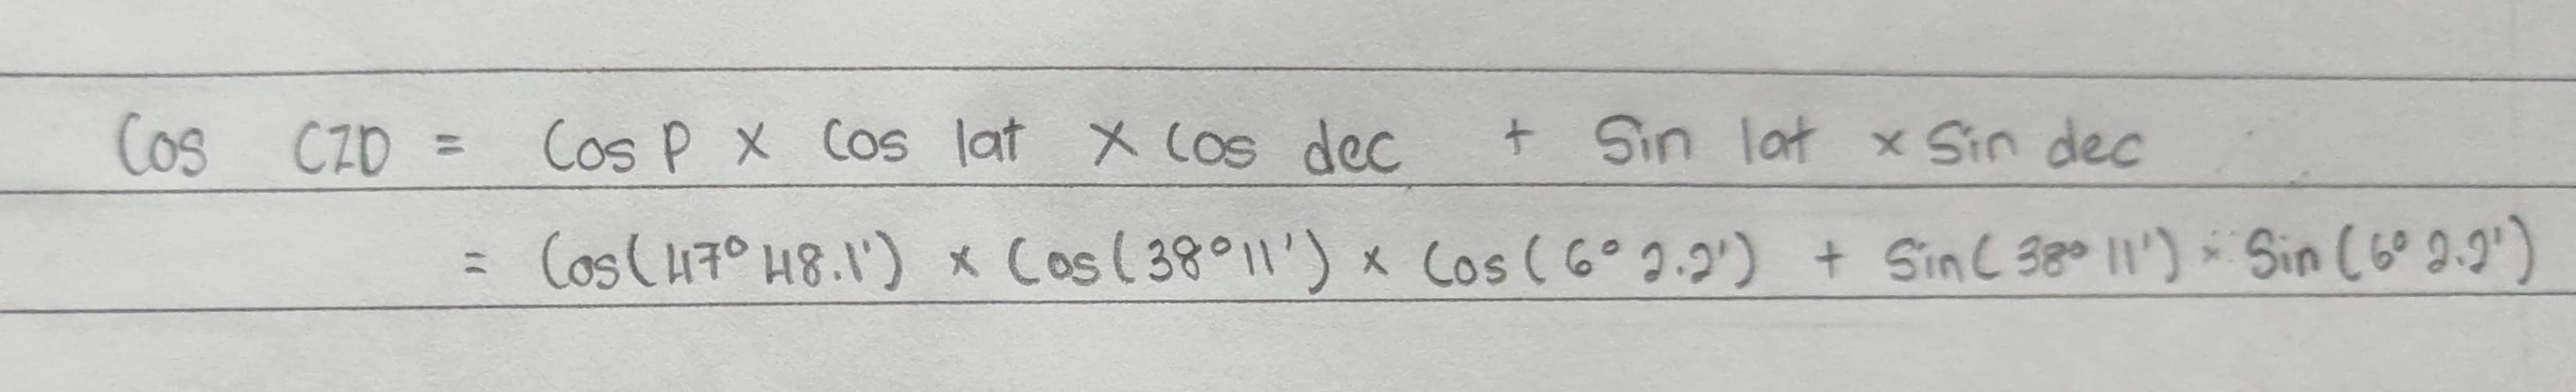 Cos CZD = Cos P x Cos lat x Cos dec + Sin lat x Sin dec
= Cos(47° 48.1') x Cos(38° 11') x Cos(6° 2.2') + Sin(38° 11') x Sin(6° 2.2')